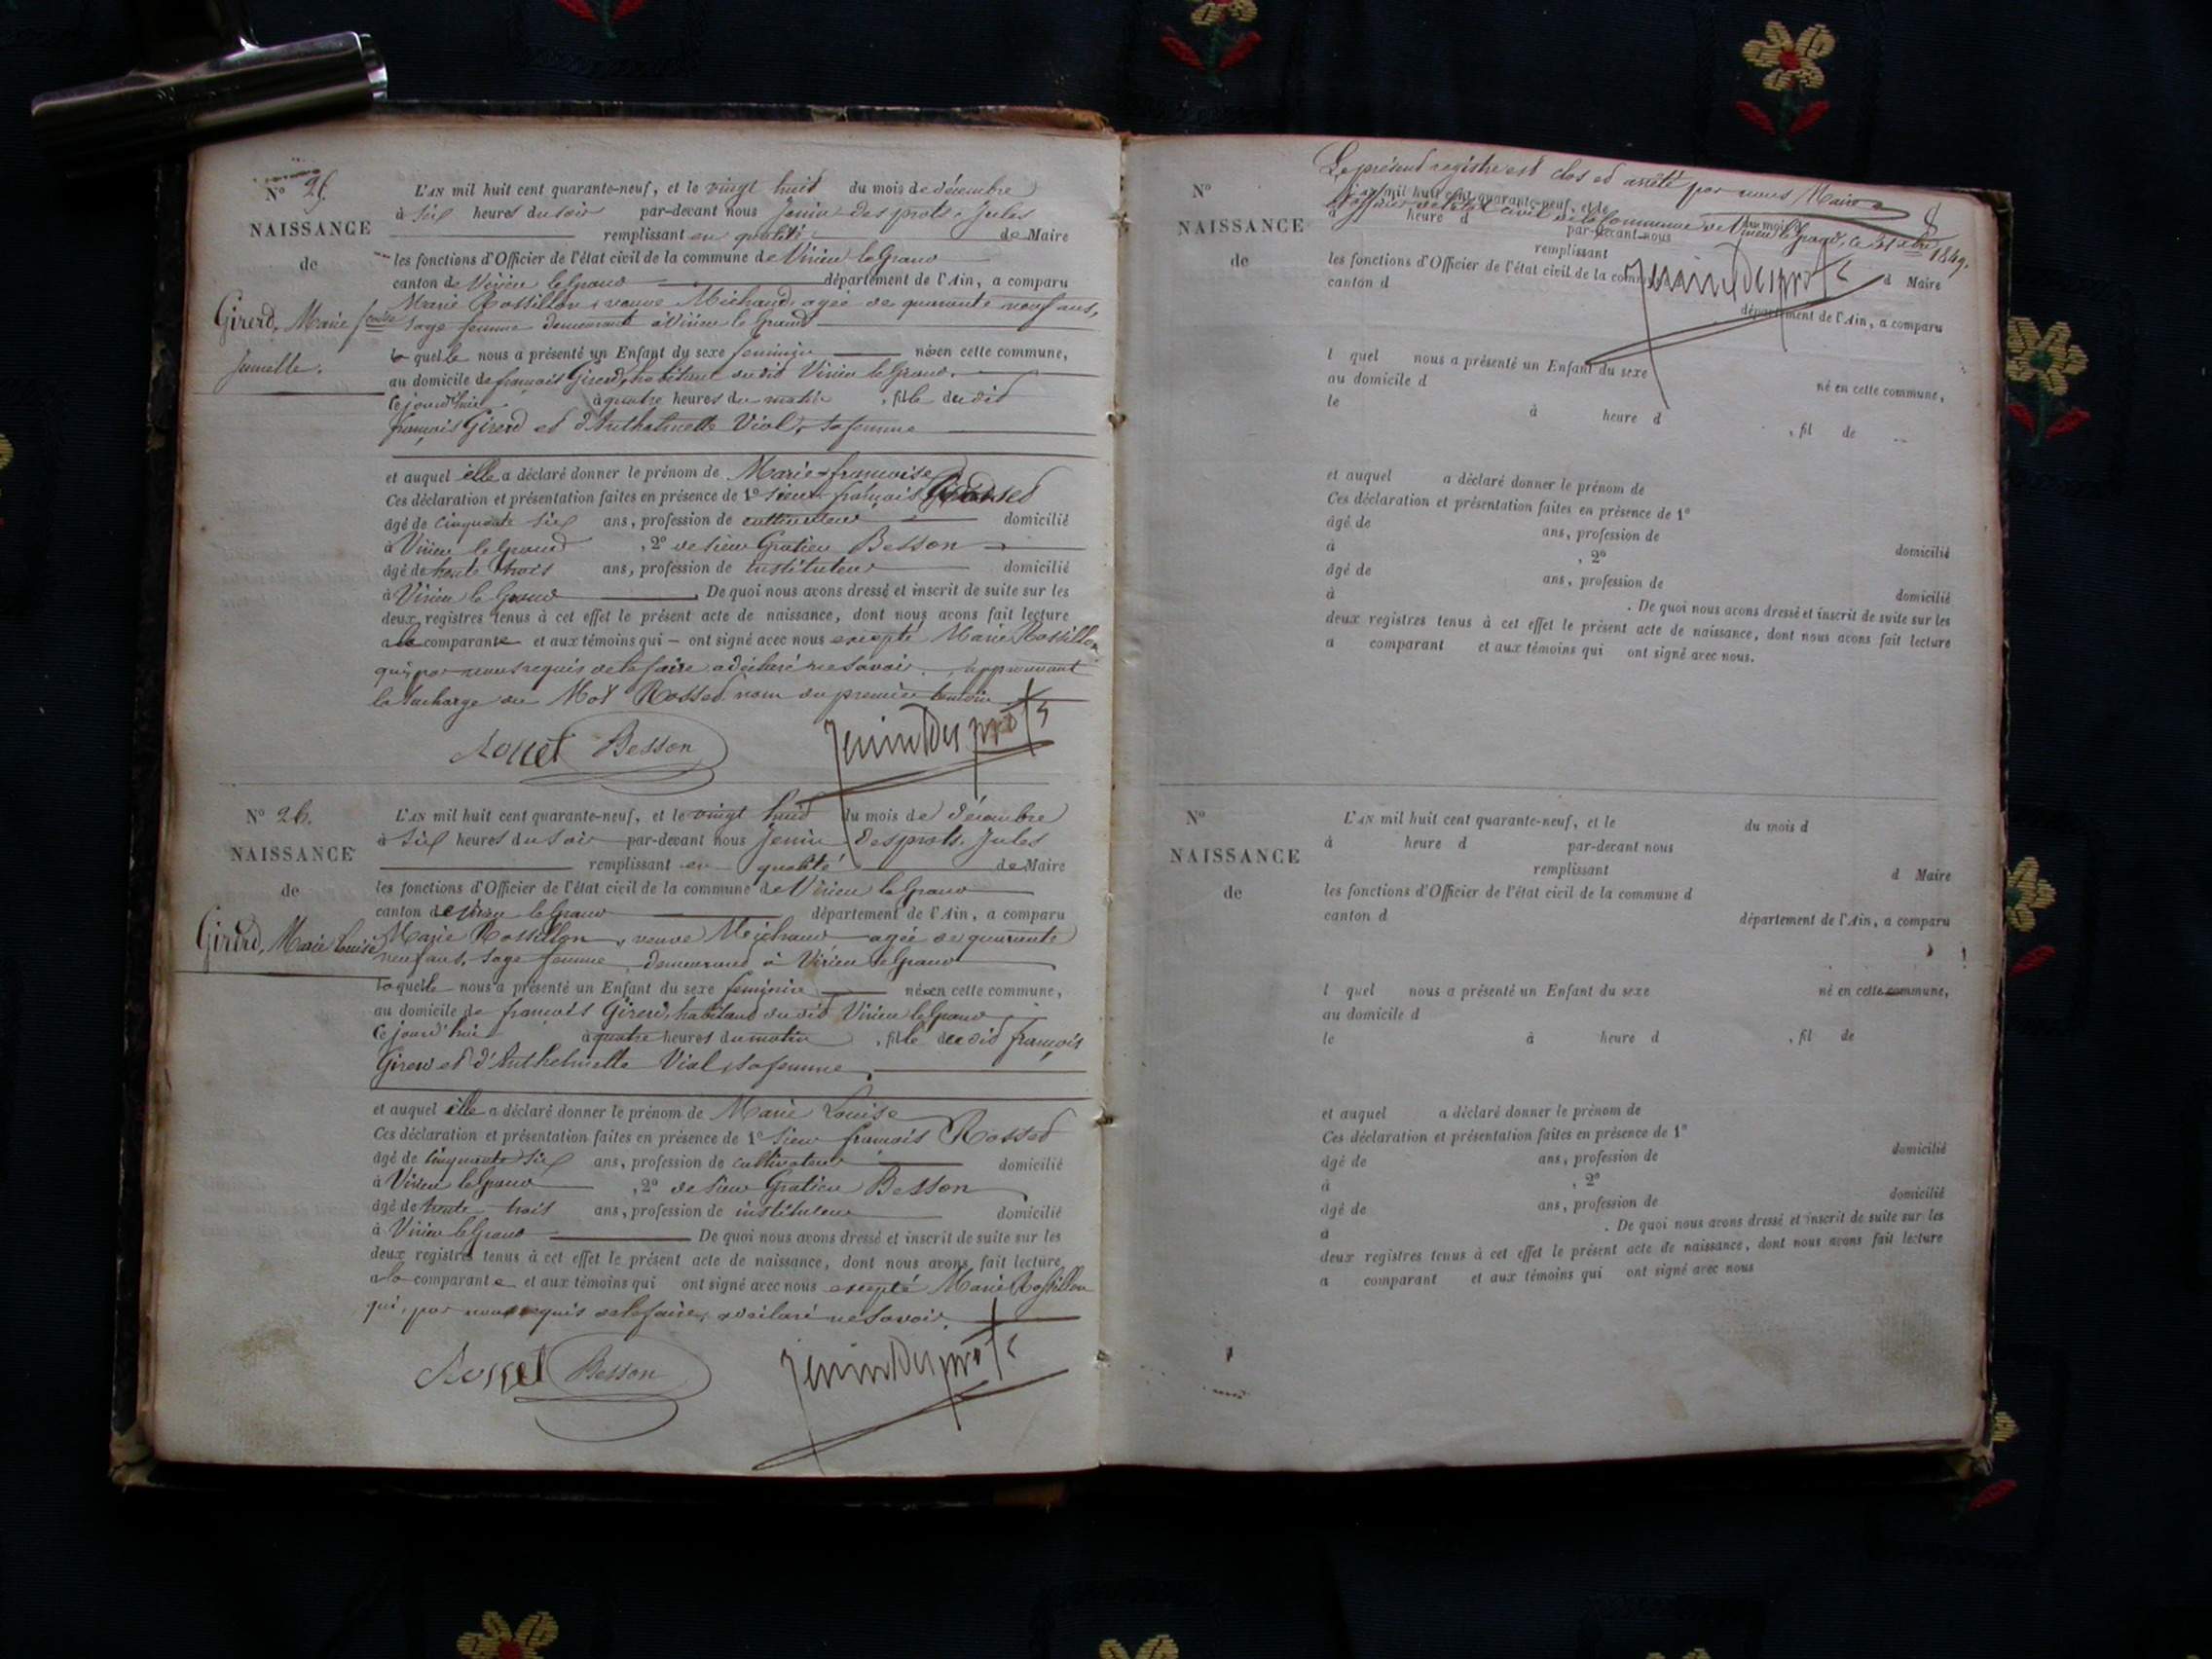 N° 25.
NAISSANCE
de
Girerd, Marie fçoise
jumelle.
L'AN mil huit cent quarante-neuf, et le vingt huit du mois de décembre
à six heures du soir par-devant nous Jenin des prots, Jules
remplissant en qualité de Maire
les fonctions d'Officier de l'état civil de la commune de Virieu le Grand
canton de Virieu le Grand département de l'Ain, a comparu
Marie Rossillon, veuve Michaud, agée de quarante neuf ans,
sage femme demeurant à Virieu le Grand
laquelle nous a présenté un Enfant du sexe feminin né en cette commune,
au domicile de françois Girerd, habitant dudit Virieu le Grand.
Ce jourd'hui à quatre heures du matin , fille dudit
françois Girerd et d'Anthelmette Vial, sa femme
et auquel elle a déclaré donner le prénom de Marie françoise
Ces déclaration et présentation faites en présence de 1° sieur françois Rosset
âgé de cinquante six ans, profession de cultivateur domicilié
à Virieu le Grand , 2° de sieur Gratien Besson
âgé de trente trois ans, profession de instituteur domicilié
à Virieu le Grand . De quoi nous avons dressé et inscrit de suite sur les
deux registres tenus à cet effet le présent acte de naissance, dont nous avons fait lecture
a la comparante et aux témoins qui – ont signé avec nous excepté Marie Rossillon
qui, par nous requis de le faire a déclaré ne savoir. approuvant
la surcharge du Mot Rosset nom du premier temoin
Rosset Besson Jenin Des prots
N° 26.
NAISSANCE
de
Girerd, Marie Louise
L'AN mil huit cent quarante-neuf, et le vingt huit du mois de décembre
à six heures du soir par-devant nous Jenin Desprots, Jules
remplissant en qualité de Maire
les fonctions d'Officier de l'état civil de la commune de Virieu le Grand
canton de Virieu le Grand département de l'Ain, a comparu
Marie Rossillon, veuve Michaud agée de quarante
neuf ans, sage femme, demeurant à Virieu le Grand
laquelle nous a présenté un Enfant du sexe feminin né en cette commune,
au domicile de françois Girerd, habitant dudit Virieu le Grand
Ce jourd'hui à quatre heures du matin , fille dudit françois
Girerd et d'Anthelmette Vial, sa femme
et auquel elle a déclaré donner le prénom de Marie Louise
Ces déclaration et présentation faites en présence de 1° Sieur françois Rosset
âgé de cinquante six ans, profession de cultivateur domicilié
à Virieu le Grand , 2° de sieur Gratien Besson
âgé de trente trois ans, profession de instituteur domicilié
à Virieu le Grand De quoi nous avons dressé et inscrit de suite sur les
deux registres tenus à cet effet le présent acte de naissance, dont nous avons fait lecture
a la comparante et aux témoins qui ont signé avec nous excepté Marie Rossillon
qui, par nous requis de le faire, a déclaré ne savoir.
Rosset Besson Jenin Des prots
Le présent registre est clos et arrêté par nous Maire
Officier de l'état civil de la Commune de Virieu le Grand, le 31 Xbre 1849.
Jenin Des prots
N°
NAISSANCE
de
L'AN mil huit cent quarante-neuf, et le du mois d
à heure d par-devant nous
remplissant d Maire
les fonctions d'Officier de l'état civil de la commune
canton d département de l'Ain, a comparu
l quel nous a présenté un Enfant du sexe né en cette commune,
au domicile d
le à heure d , fil de
et auquel a déclaré donner le prénom de
Ces déclaration et présentation faites en présence de 1°
âgé de ans, profession de domicilié
à , 2°
âgé de ans, profession de domicilié
à . De quoi nous avons dressé et inscrit de suite sur les
deux registres tenus à cet effet le présent acte de naissance, dont nous avons fait lecture
a comparant et aux témoins qui ont signé avec nous.
N°
NAISSANCE
de
L'AN mil huit cent quarante-neuf, et le du mois d
à heure d par-devant nous
remplissant d Maire
les fonctions d'Officier de l'état civil de la commune d
canton d département de l'Ain, a comparu
l quel nous a présenté un Enfant du sexe né en cette commune,
au domicile d
le à heure d , fil de
et auquel a déclaré donner le prénom de
Ces déclaration et présentation faites en présence de 1°
âgé de ans, profession de domicilié
à , 2°
âgé de ans, profession de domicilié
à . De quoi nous avons dressé et inscrit de suite sur les
deux registres tenus à cet effet le présent acte de naissance, dont nous avons fait lecture
a comparant et aux témoins qui ont signé avec nous